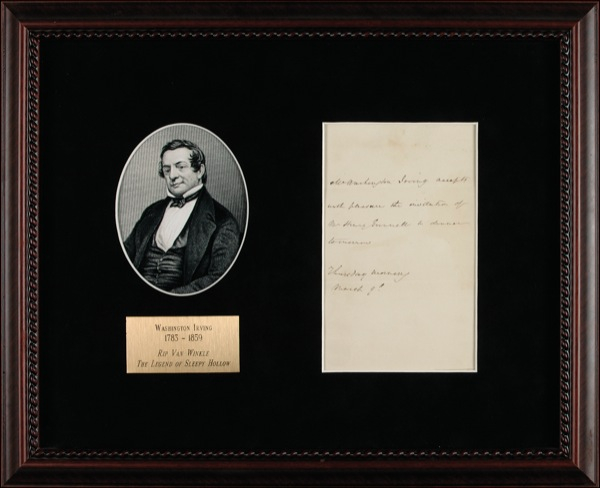 Washington Irving
1783 – 1859
Rip Van Winkle
The Legend of Sleepy Hollow
Mr Washington Irving accepts
with pleasure the invitation of
Mr to dinner
tomorrow
Thursday morning
March 9th